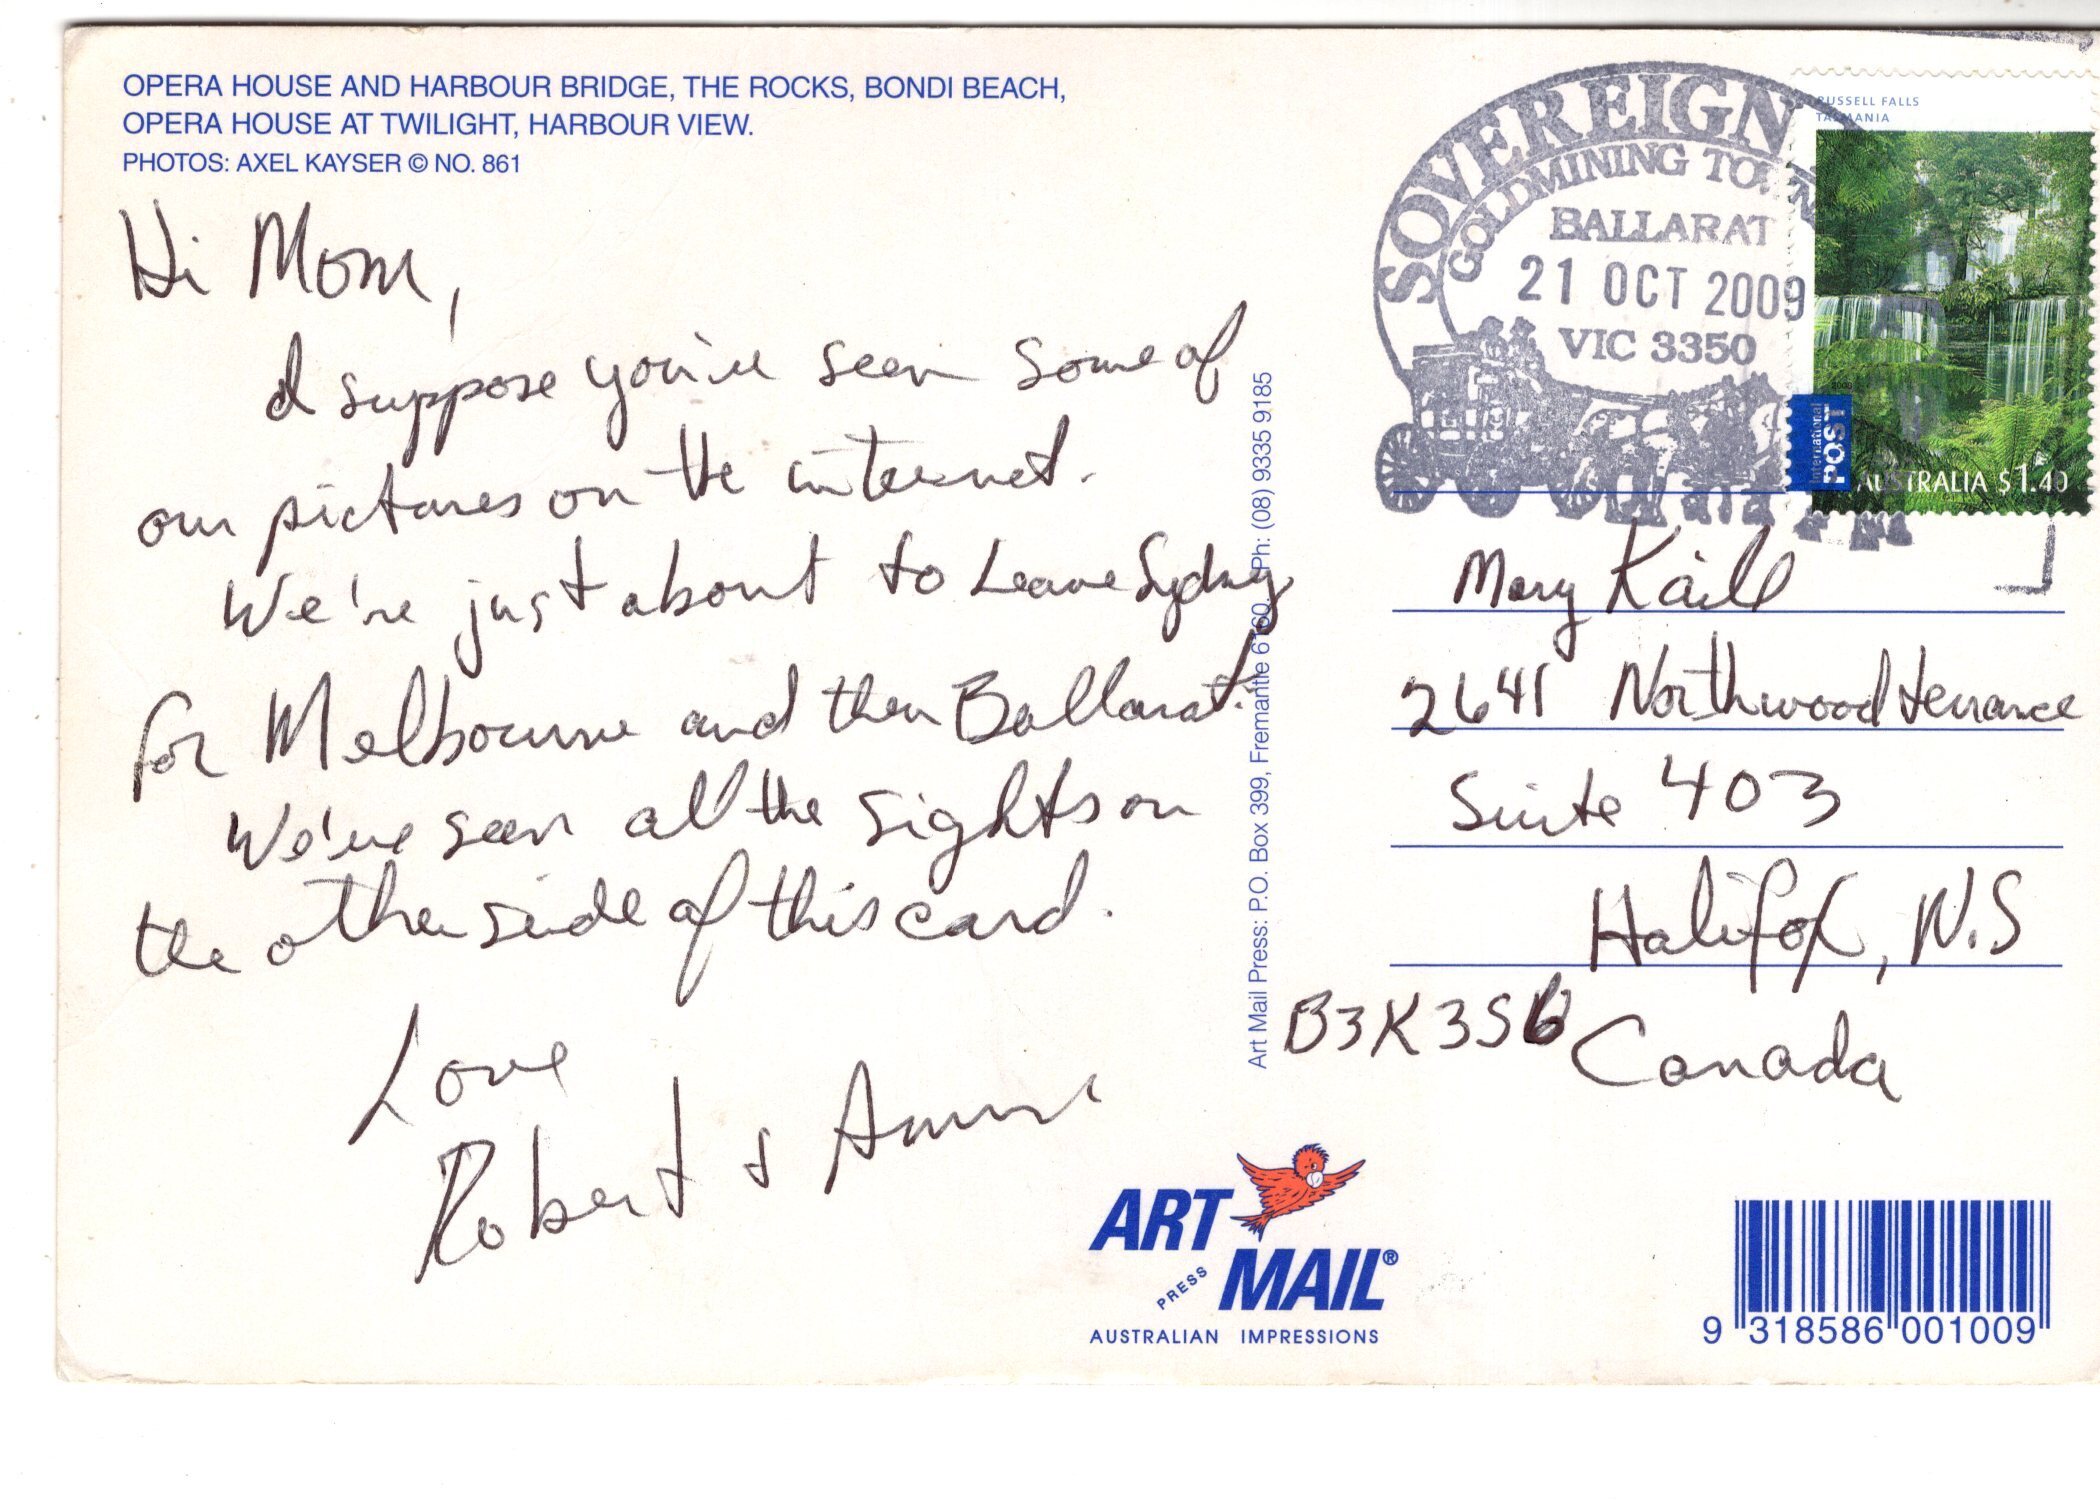 OPERA HOUSE AND HARBOUR BRIDGE, THE ROCKS, BONDI BEACH,
OPERA HOUSE AT TWILIGHT, HARBOUR VIEW.
PHOTOS: AXEL KAYSER © NO. 861
Hi Mom,
I suppose you've seen some of
our pictures on the internet.
We're just about to leave Sydney
for Melbourne and then Ballarat.
We've seen all the sights on
the other side of this card.
Love
Robert &
Art Mail Press: P.O. Box 399, Fremantle 6160. Ph: (08) 9335 9185
SOVEREIGN
GOLDMINING TOWN
BALLARAT
21 OCT 2009
VIC 3350
RUSSELL FALLS
TASMANIA
2008
International
POST
AUSTRALIA $1.40
Mary Kaill
2641 Northwood terrance
Suite 403
Halifax, N.S
B3K3S6
Canada
ART
PRESS
MAIL®
AUSTRALIAN IMPRESSIONS
9 318586 001009